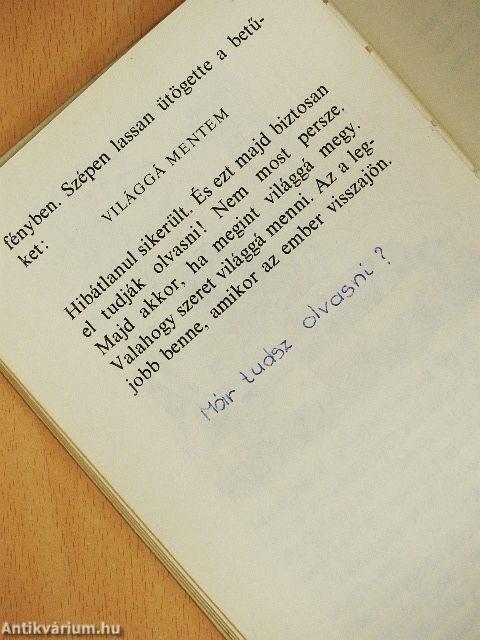 fényben. Szépen lassan ütögette a betű-
ket:
VILÁGGÁ MENTEM
Hibátlanul sikerült. És ezt majd biztosan
el tudják olvasni! Nem most persze.
Majd akkor, ha megint világgá megy.
Valahogy szeret világgá menni. Az a leg-
jobb benne, amikor az ember visszajön.
Már tudsz olvasni?
Antikvárium.hu